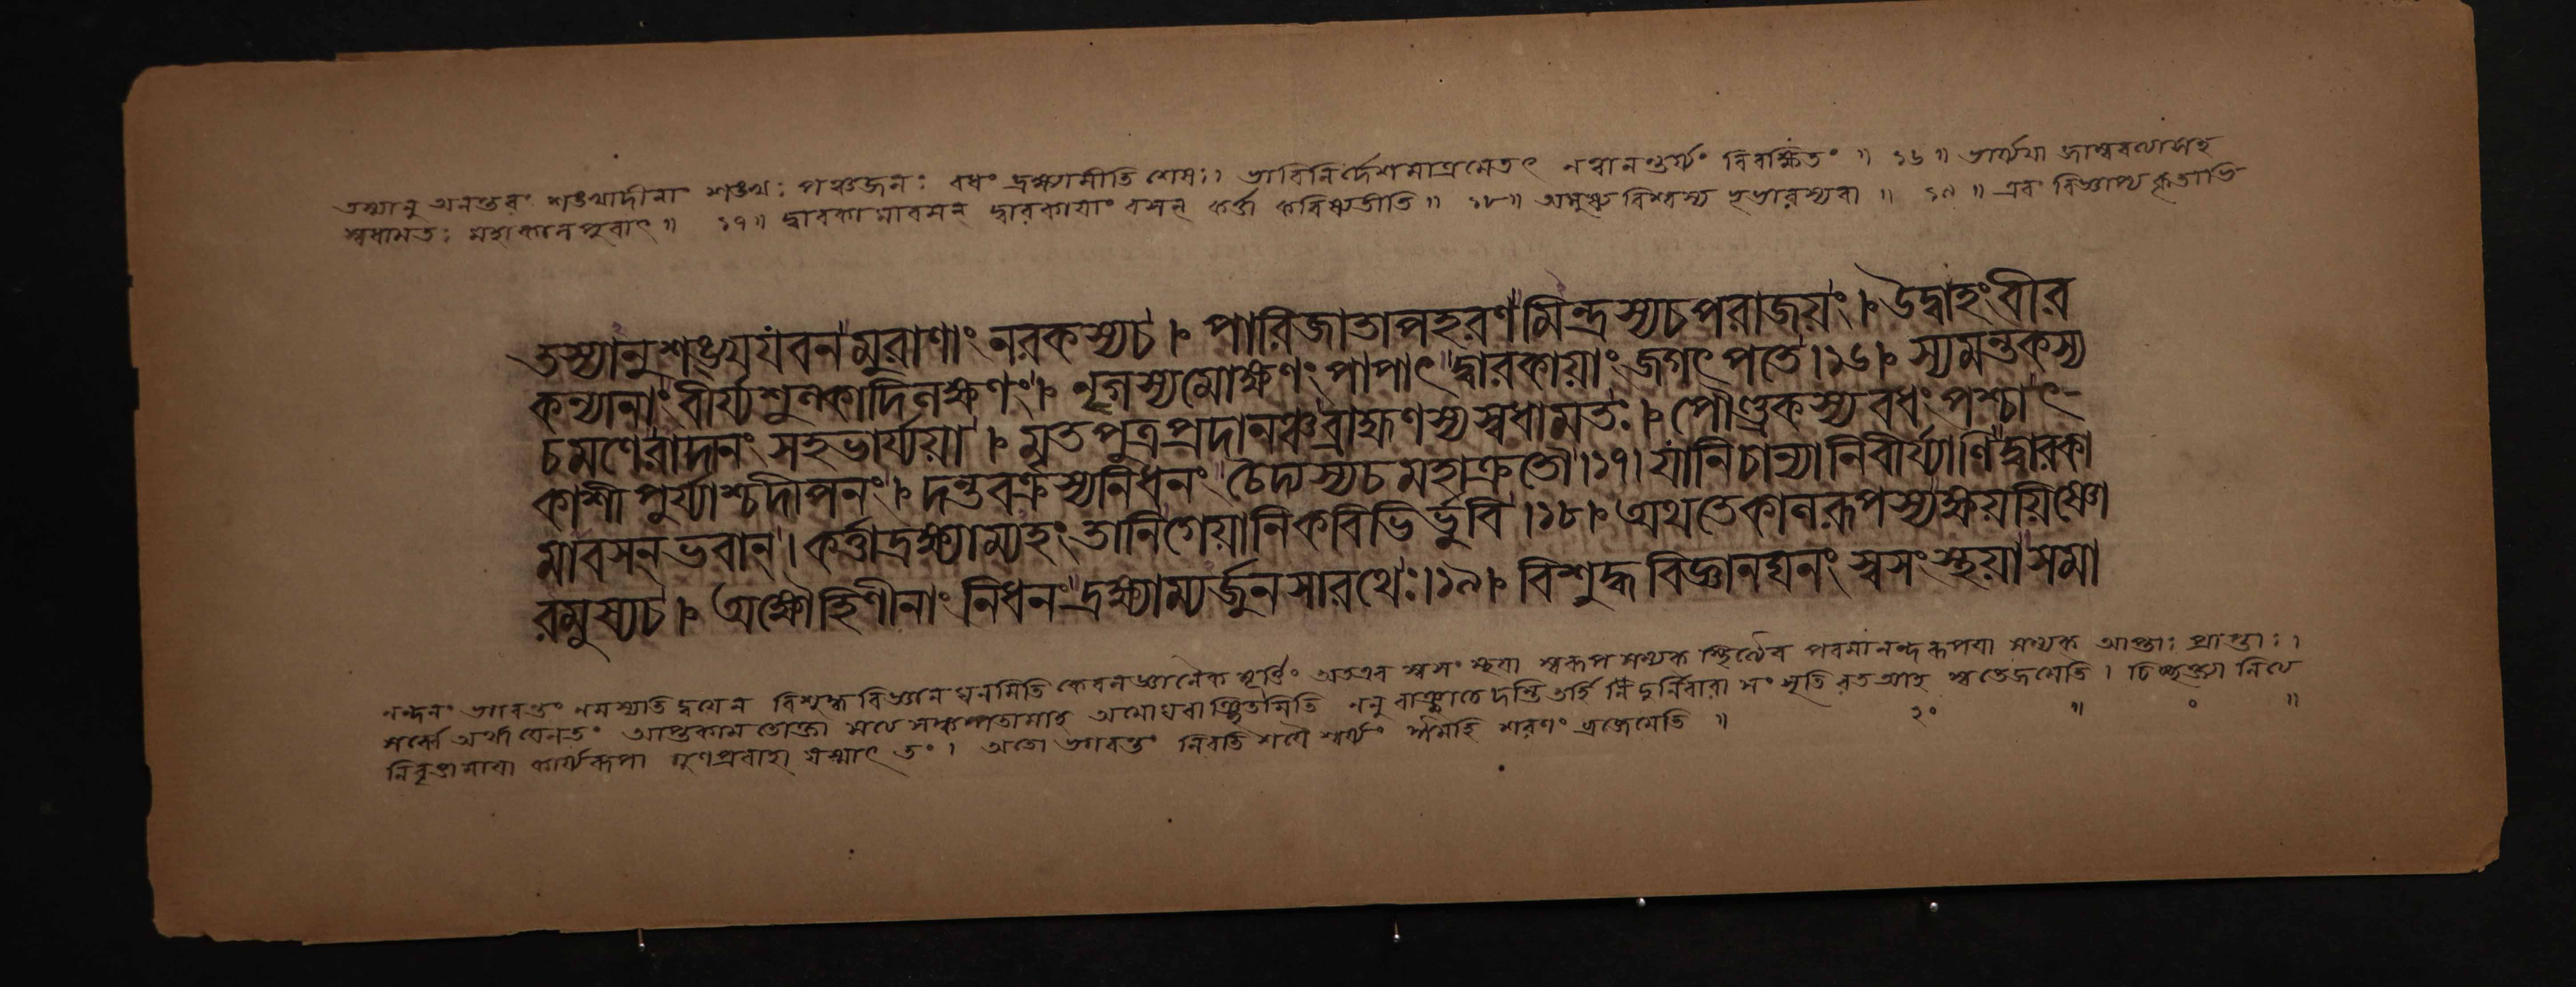 তস্যানু অনন্তরং শঙখাদীনাং শঙখঃ পঞ্চজনঃ বধং দ্রক্ষ্যামীতি শেষঃ। ভাবিনির্দেশমাত্রমেতৎ নত্বানন্তর্য্যং বিবক্ষিতং ॥ ১৬ ॥ ভার্য্যয়া জাম্ববত্যাসহ
স্বধামতঃ মহাকালপুরাৎ ॥ ১৭ ॥ দ্বারকামাবসন্ দ্বারকায়াং বসন্ কর্ত্তা করিষ্যতীতি ॥ ১৮ ॥ অমুষ্য বিশ্বস্য হৃভারস্যবা ॥ ১৯ ॥ এবং বিজ্ঞাপ্য কৃতাভি
তস্যানুশঙ্খযবনমুরাণাং নরকস্যচ । পারিজাতাপহরণমিন্দ্রস্যচপরাজয়ং । উদ্বাহংবীর
কন্যানাং বীর্য্যশুল্কাদিলক্ষণং । নৃগস্যমোক্ষণং পাপাৎ দ্বারকায়াং জগৎপতে ।১৬। স্যমন্তকস্য
চমণেরাদানং সহভার্য্যয়া । মৃতপুত্রপ্রদানঞ্চব্রাহ্মণস্যস্বধামতঃ । পৌণ্ড্রকস্যবধং পশ্চাৎ-
কাশীপুর্য্যাশ্চদীপনং । দন্তবক্রস্যনিধনং চৈদ্যস্যচমহাক্রতৌ ।১৭। যানিচান্যানিবীর্য্যাণিদ্বারকা
মাবসন্ ভবান্ । কর্ত্তাদ্রক্ষ্যাম্যহং তানিগেয়ানিকবিভির্ভুবি ।১৮। অথতেকালরূপস্যক্ষয়য়িষ্ণো
রমুষ্যচ । অক্ষৌহিণীনাং নিধনং দ্রক্ষ্যাম্যর্জুনসারথেঃ ।১৯। বিশুদ্ধবিজ্ঞানঘনং স্বসংস্থয়াসমা
নন্দনং ভগবন্তং নমস্যতি দ্বয়েন বিশুদ্ধবিজ্ঞানঘনমিতি কেবলজ্ঞানৈকমূর্ত্তিং অতএব স্বসংস্থয়া স্বরূপসম্যক স্থিত্যৈব পরমানন্দরূপয়া সম্যক আপ্তাঃ প্রাপ্তাঃ।
সর্ব্বে অর্থা যেনতং আপ্তকাম অমোঘবাঞ্ছিতমিতি ননু র্হি দুর্নিবারা সংসৃতি আহ স্বতেজসেতি । চিচ্ছক্ত্যা নিত্য
নিবৃত্তামায়া কার্য্যরূপা গুণপ্রবাহা যস্মাৎ তং । অতো ভগবন্তং শরণং ব্রজেমেতি ॥ ২০ ॥ ০ ॥